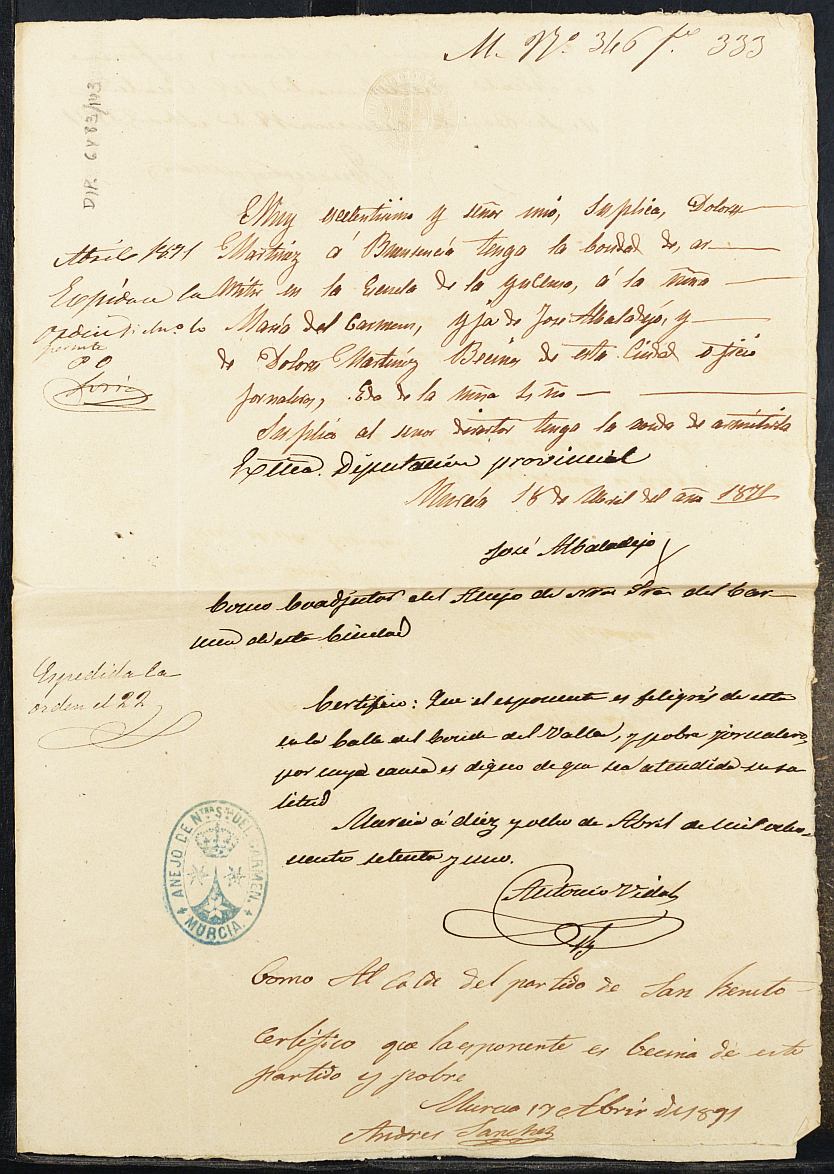 M. Nº 346 fº 333
DIP. 6483/143
Muy escelentisimo y señor mio, Suplica, Dolores
Martinez á Buesencia tenga la bondad de, ar
Mitir en la Escuela de la ynclusa, á la niña
Maria del Carmen, yja de Jose Albaladejo, y
de Dolores Martinez Becinos de esta Ciudad oficio
jornalero, Eda de la niña
Suplica al señor director tenga la de armitirla
Exma. Diputación provincial
Murcia 18 de Abril del año 1871
José Albaladejo
Abril 1871
Expidase la
orden si el nº lo
permite
P O
Espedida la
orden el 22
Como Coadjutor del Anejo de Ntra Sra del Car-
men de esta Ciudad
Certifico: Que el esponente es feligrés de esta
en la Calle del Conde del Valle, y pobre jornalero,
por cuya causa es digno de que sea atendida su so
licitud
Murcia á diez y ocho de Abril de mil ocho-
cientos setenta y uno.
Antonio Vidal
ANEJO DE NTRA SRA DEL CARMEN.
MURCIA.
Como Alcalde del partido de San Benito
Certifico que la esponente es becina de este
partido y pobre
Murcia 17 Abrir de 1871
Andres Sanchez